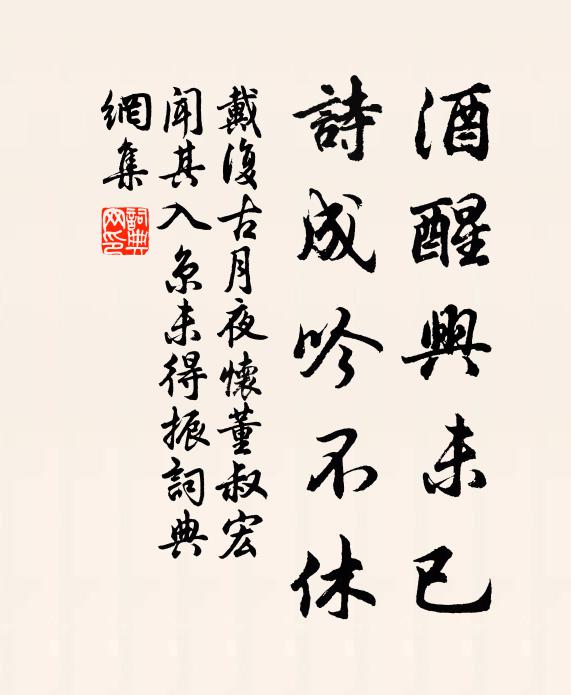 酒醒興未已
詩成吟不休
戴復古月夜懷董叔宏
聞其入京未得振詞典
網集
詞典网印